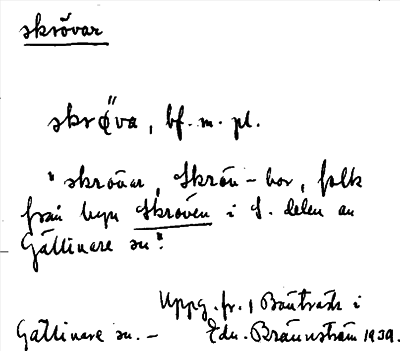 skrövar
skrøva, bf. m. pl.
"skrövar, Skröv-bor, folk
från byn Skröven i S. delen av
Gällivare sn."
Uppg. fr. i
Gällivare sn. – Edv. Brännström 1939.